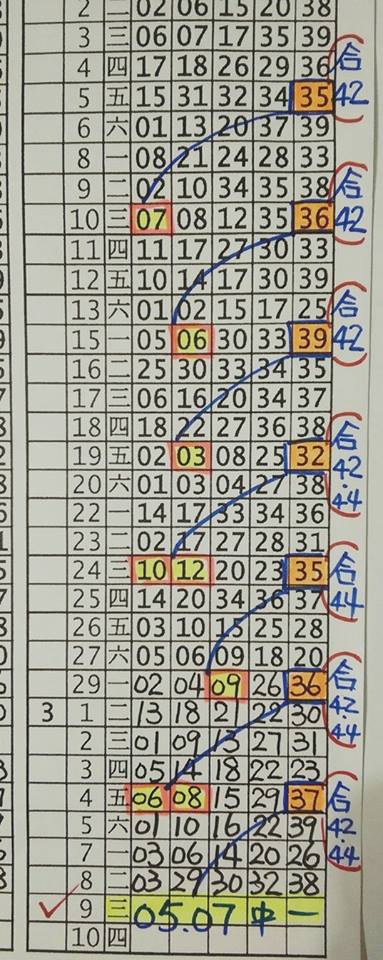 2 二 02 06 15 20 38
3 三 06 07 17 35 39
4 四 17 18 26 29 36 合
5 五 15 31 32 34 35 42
6 六 01 13 20 37 39
8 一 08 21 24 28 33
9 二 02 10 34 35 38 合
10 三 07 08 12 35 36 42
11 四 11 17 27 30 33
12 五 10 14 17 30 39
13 六 01 02 15 17 25 合
15 一 05 06 30 33 39 42
16 二 25 30 33 34 35
17 三 06 16 20 34 37
18 四 18 22 27 36 38 合
19 五 02 03 08 25 32 42
20 六 01 03 04 27 38 44
22 一 14 17 33 34 36
23 二 02 17 27 28 31
24 三 10 12 20 23 35 合
25 四 14 20 34 36 37 44
26 五 03 10 15 25 28
27 六 05 06 09 18 20
29 一 02 04 09 26 36 合
3 1 二 13 18 21 22 30 42
2 三 01 09 13 27 31 44
3 四 05 14 18 22 23
4 五 06 08 15 29 37 合
5 六 01 10 16 22 39 42
7 一 03 06 14 20 26 44
8 二 03 29 30 32 38
9 三 05.07 中一
10 四